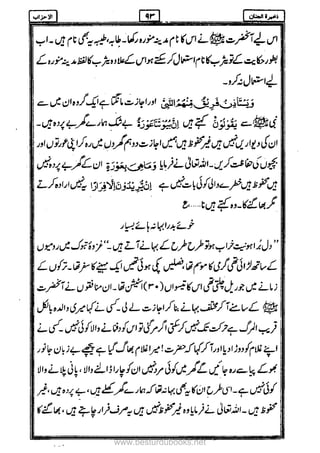 ذخیرۃ الجنان
۹۳
الاحزاب
اس لیے آنحضرت ﷺ نے اس کا نام مدینہ منورہ رکھا۔ طابہ، طیبہ بھی نام ہیں۔ اب
بطور حکایت کے تو یثرب کا نام استعمال کر سکتے ہو اس کے علاوہ یثرب کا لفظ مدینہ منورہ کے
لیے استعمال نہ کرو۔
وَيَسْتَأْذِنُ فَرِيقٌ مِّنْهُمُ النَّبِيَّ اور اجازت مانگتا ہے ایک گروہ ان میں سے
نبی ﷺ سے يَقُولُونَ کہتے ہیں إِنَّ بُيُوتَنَا عَوْرَةٌ بے شک ہمارے گھر بے پردہ ہیں۔
ان کی دیواریں نہیں ہیں غیر محفوظ ہیں ہمیں اجازت دو ہم گھروں میں رہ کر اپنی عورتوں اور
بچیوں کی حفاظت کریں۔ اللہ تعالیٰ نے فرمایا وَمَا هِيَ بِعَوْرَةٍ ان کے گھر بے پردہ نہیں
ہیں محفوظ ہیں خطرے والی کوئی بات نہیں ہے إِن يُرِيدُونَ إِلَّا فِرَارًا نہیں ارادہ کرتے
مگر بھاگنے کا۔ وہ کہتے ہیں نا.....ع
خوئے بد را بہانہ ہائے بسیار
"دل بُرا ہو نیت خراب ہو تو طرح طرح کے بہانے آتے ہیں۔" غزوۂ تبوک میں رومیوں
کے ساتھ لڑائی تھی گرمی کا موسم تھا فصلیں پکی ہوئی تھیں ایک مہینے کا سفر تھا۔ ترکوں کے
زمانے میں جو ریل چلتی تھی اس کا تیسواں (۳۰) اسٹیشن تھا۔ ان منافقوں نے آنحضرت
ﷺ کے سامنے آ کر مختلف بہانے بنا کر اجازت لے لی۔ کسی نے کہا میری والدہ بالکل
قریب المرگ ہے حرکت تک نہیں کر سکتی اگر مر گئی تو اس کو دفنانے والا کوئی نہیں کسی نے
اپنے غلام کو دوڑا دیا اور آ کر کہا کہ حضرت! میرا غلام بھاگ گیا ہے پیچھے بے زبان جانور
بھوکے پیاسے رہ جائیں گے گھر میں کوئی مرد نہیں ان کو چارا ڈالنے والا، پانی پلانے والا
کوئی نہیں ہے۔ اسی طرح ان کا یہ بھی بہانہ تھا کہ ہمارے گھر کھلے ہیں، بے پردہ ہیں، غیر
محفوظ ہیں۔ اللہ تعالیٰ نے فرمایا وہ غیر محفوظ نہیں ہیں یہ صرف فرار چاہتے ہیں، بھاگنے کا
www.besturdubooks.net